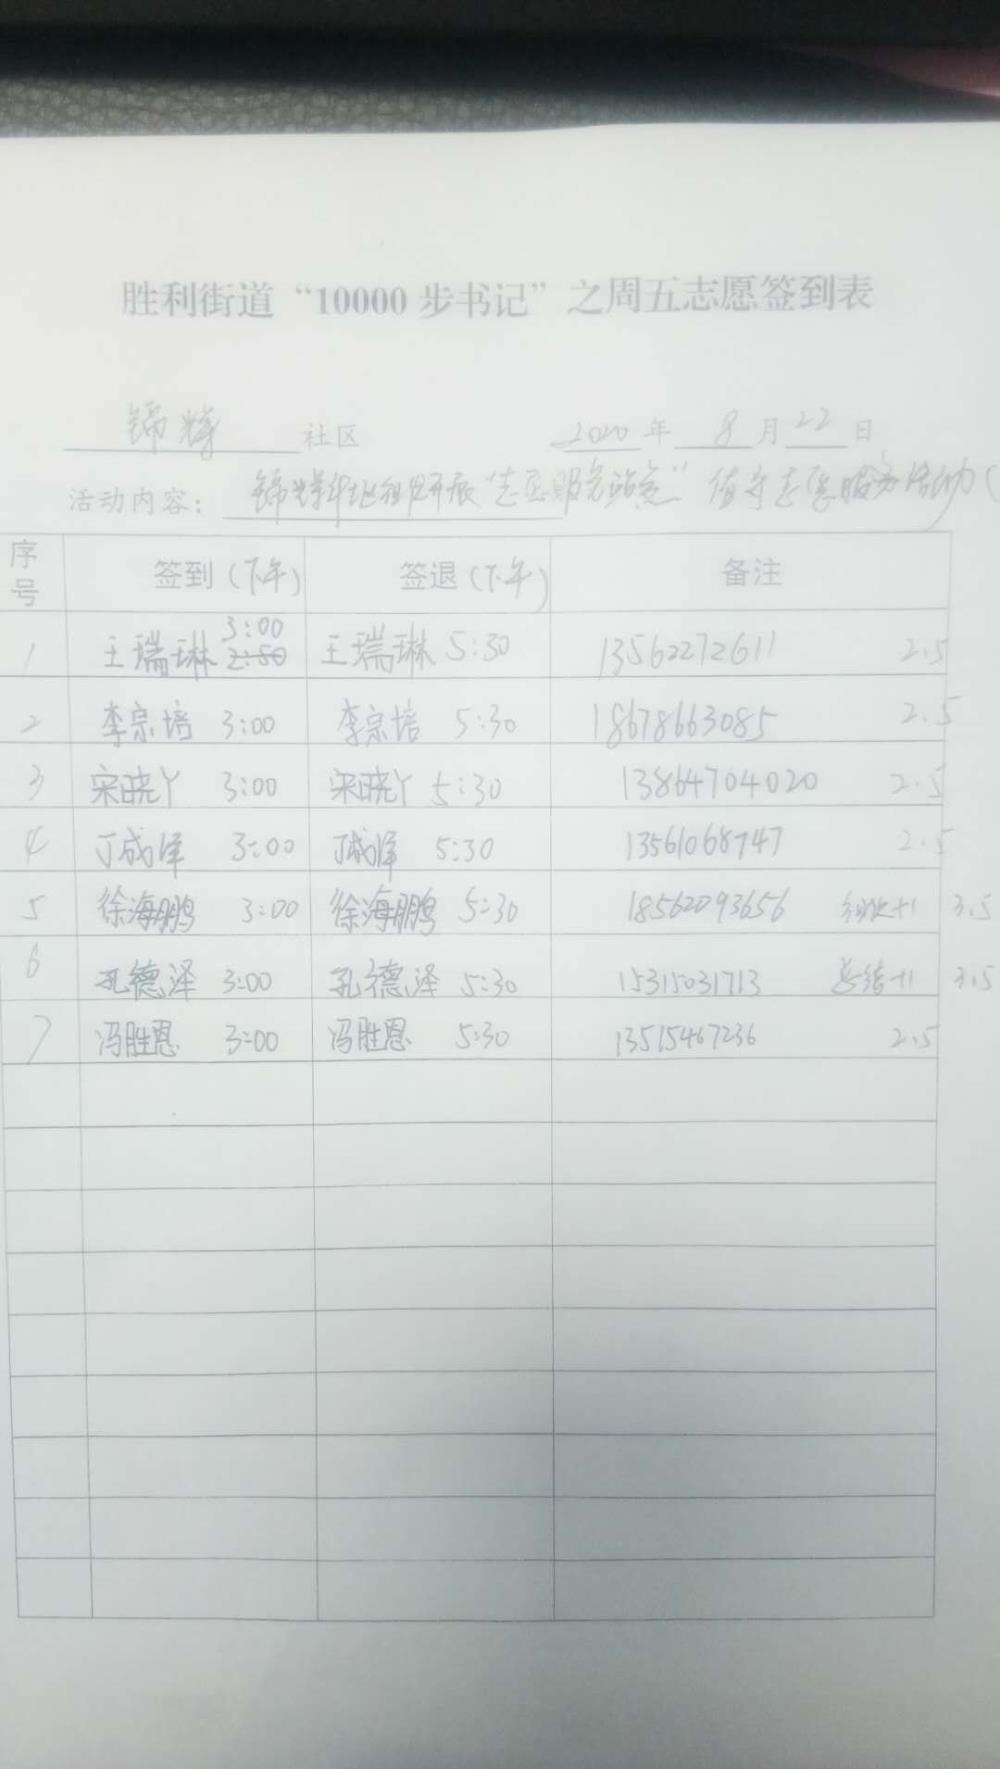 胜利街道“10000步书记”之周五志愿签到表
锦辉 社区 2020年 8月22日
活动内容：锦辉社区组织开展“志愿服务站点”值守志愿服务活动（
序号 签到（下午） 签退（下午） 备注
1 王瑞琳 3:00 2:50 王瑞琳 5:30 13562272611 2.5
2 李宗培 3:00 李宗培 5:30 18678663085 2.5
3 宋晓丫 3:00 宋晓丫 5:30 13864704020 2.5
4 丁成泽 3:00 丁成泽 5:30 13561068747 2.5
5 徐海鹏 3:00 徐海鹏 5:30 18562093656 +1 3.5
6 孔德泽 3:00 孔德泽 5:30 15315031713 总结+1 3.5
7 冯胜恩 3:00 冯胜恩 5:30 13515467236 2.5